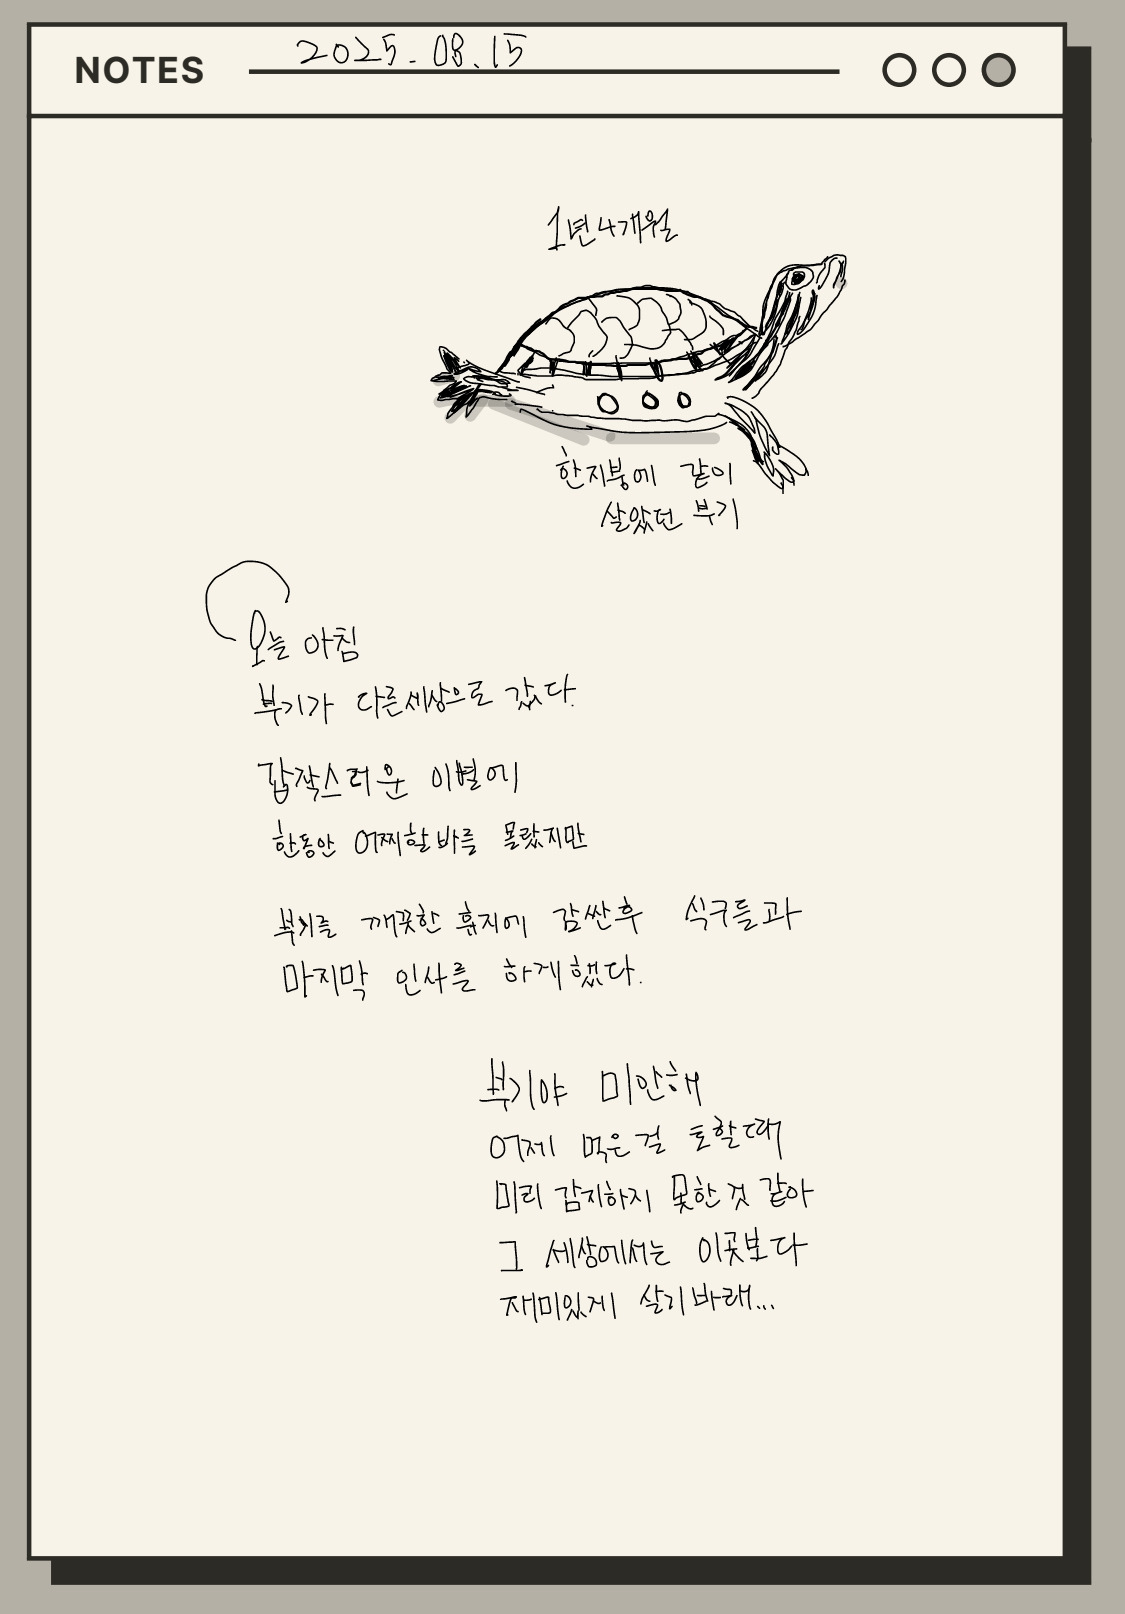 2025.08.15
NOTES
1년 4개월
한지붕에 같이
살았던 부기
오늘 아침
부기가 다른세상으로 갔다.
갑작스러운 이별에
한동안 어찌할바를 몰랐지만
부기를 깨끗한 휴지에 감싼후 식구들과
마지막 인사를 하게했다.
부기야 미안해
어제 먹은걸 토할때
미리 감지하지 못한것 같아
그 세상에서는 이곳보다
재미있게 살기바래...